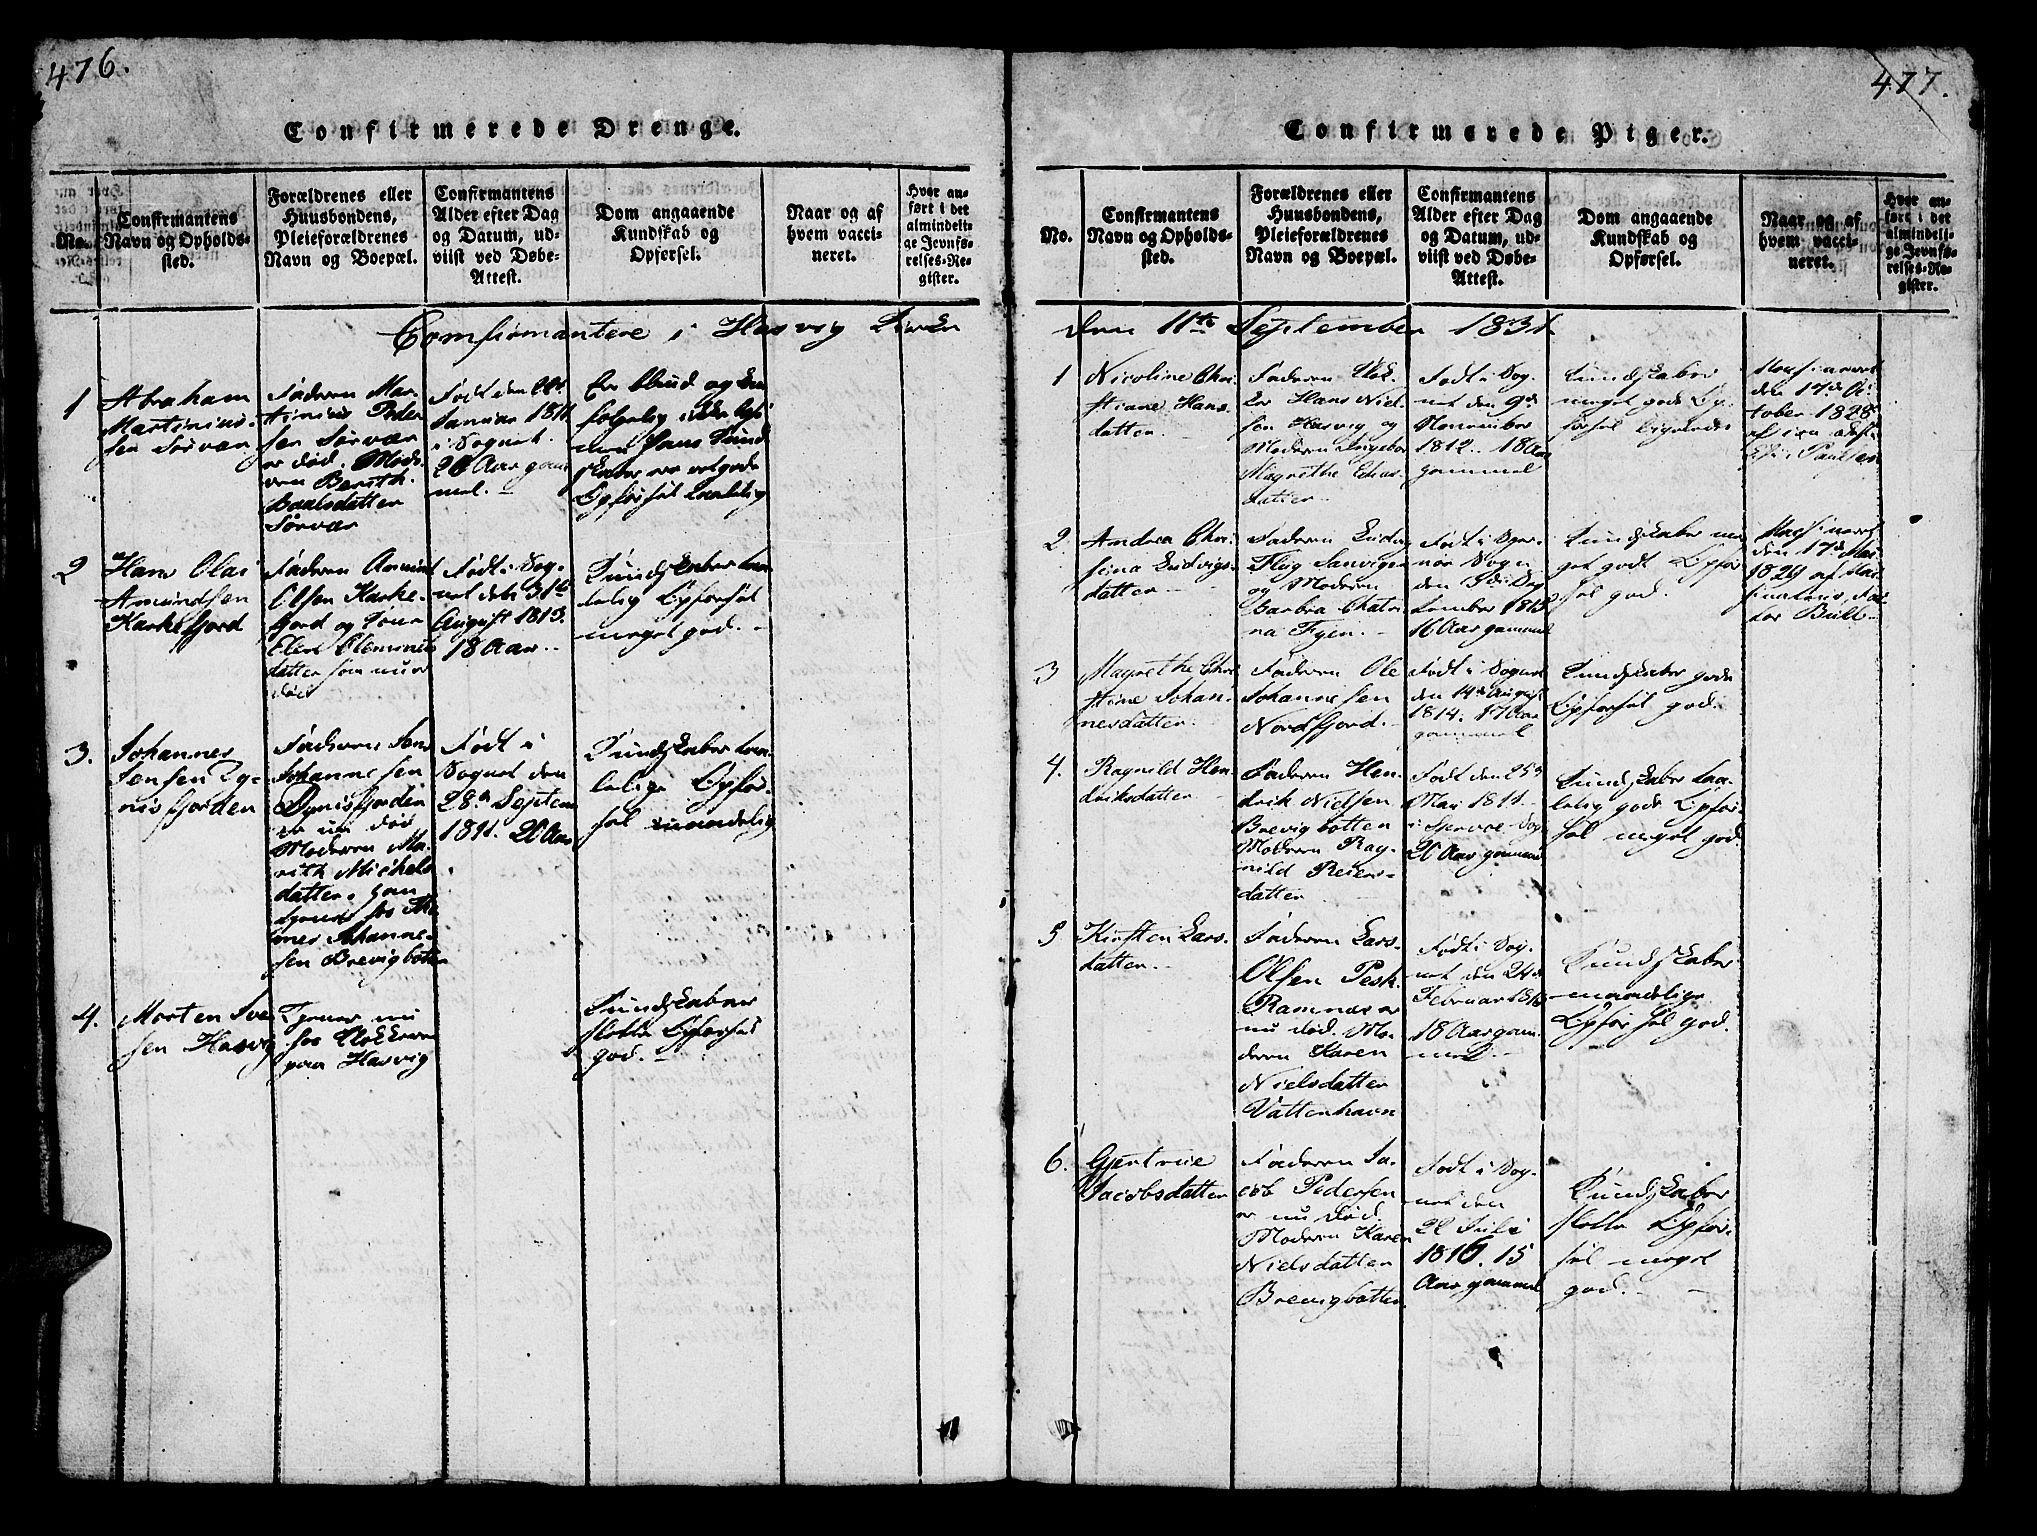 476.
Confirmerede Drenge.
No.
Confirmantens
Navn og Opholds-
sted.
Forældrenes eller
Huusbondens,
Pleieforældrenes
Navn og Boepæl.
Confirmantens
Alder efter Dag
og Datum, ud-
viist ved Døbe-
Attest.
Dom angaaende
Kundskab og
Opførsel.
Naar og af
hvem vacci-
neret.
Hvor an-
ført i det
almindeli-
ge Jevnfø-
relses-Re-
gister.
Confirmantere i Hasvig Kirke
1
Abraham
Martinius-
sen Sørvær
Faderen Mar-
tinius Peder
sen Sørvær
er død. Mode-
ren Berith
Paalsdatter
Sørvær
Født den
Januar 1811
i Sognet.
20 Aar gam
mel. -
Er blind og
følgelig ikke
men Hans Kund
skaber ere
Opførsel
2
Hans Olai
Amundsen
Karkefjord
Faderen Amund
Olsen Karke-
fjord og
Elen Clemmens
datter som nu er
død
Født i Sog-
net den 31te
August 1813.
18 Aar. -
Kundskaber
Opførsel
meget god. -
3.
Johannes
Jensen Dy-
nisfjorden
Faderen Jens
Johannesen
Dynisfjorden
er nu død
Moderen Ma-
rith Michels
datter. Han
tjener hos
Johanne-
sen Brevigbotten
Født i
Sognet den
28de Septem
1811. 20 Aar
Kundskaber
Opfør-
sel maadelig
4.
Morten
sen Hasvig
Tjener nu
hos Klokkeren
paa Hasvig
Kundskaber
slette Opførsel
god. -
477.
Confirmerede Piger.
No.
Confirmantens
Navn og Opholds-
sted.
Forældrenes eller
Huusbondens,
Pleieforældrenes
Navn og Boepæl.
Confirmantens
Alder efter Dag
og Datum, ud-
viist ved Døbe-
Attest.
Dom angaaende
Kundskab og
Opførsel.
Naar og af
hvem vacci-
neret.
Hvor an-
ført i det
almindeli-
ge Jevnfø-
relses-Re-
gister.
den 11te September 1831
1
Nicoline Chri-
stiane Hans-
datter
Faderen Klok-
ker Hans Niel-
sen Hasvig og
Moderen Ingebor
Magrethe
datter
Født i Sog-
net den 9de
November
1812. 18 Aar
gammel
Kundskaber
meget gode Op-
førsel ligeledes
Vaccineret
den 17de Oc-
tober 1828
af
Paulsen
2.
Andrea Chri-
stina Ludvigs-
datter
Faderen Ludvig
og Moderen
Barbra Chatri-
na Fyen. -
Født i
Sogn
den
1815
16 Aar gammel
Kundskaber me
get godt Opfør
sel god.
Vaccineret
den 17de Mai
1829 af
Bull -
3
Magrethe Chri
stine Johan-
nesdatter
Faderen Ole
Johannesen
Nordfjord.
Født i Sognet
den 14de August
1814. 17 Aar
gammel
Kundskaber gode
Opførsel god.
4.
Ragnild Hen-
driksdatter
Faderen Hen-
drik Nielsen
Brevigbotten
Moderen Rag-
nild Reiers-
datter
Født den 25de
Mai 1811
i
20 Aar gammel
Kundskaber
gode Opfør-
sel meget god.
5
Kirsten Lars-
datter
Faderen Lars
Olsen
er
nu død. Mo-
deren Karen
Nielsdatter
Vattenhavn
Født i Sog-
net den 24de
Februar 1813
18 Aar gam-
mel. -
Kundskaber
maadelige
Opførsel god.
6.
Gjertrue
Jacobsdatter
Faderen Ja-
cob Pedersen
er nu død.
Moderen Karen
Nielsdatter
Brevigbotten.
Født i Sog-
net den
Juli
1816. 15
Aar gammel
Kundskaber
slette Opfør-
sel meget
god. -